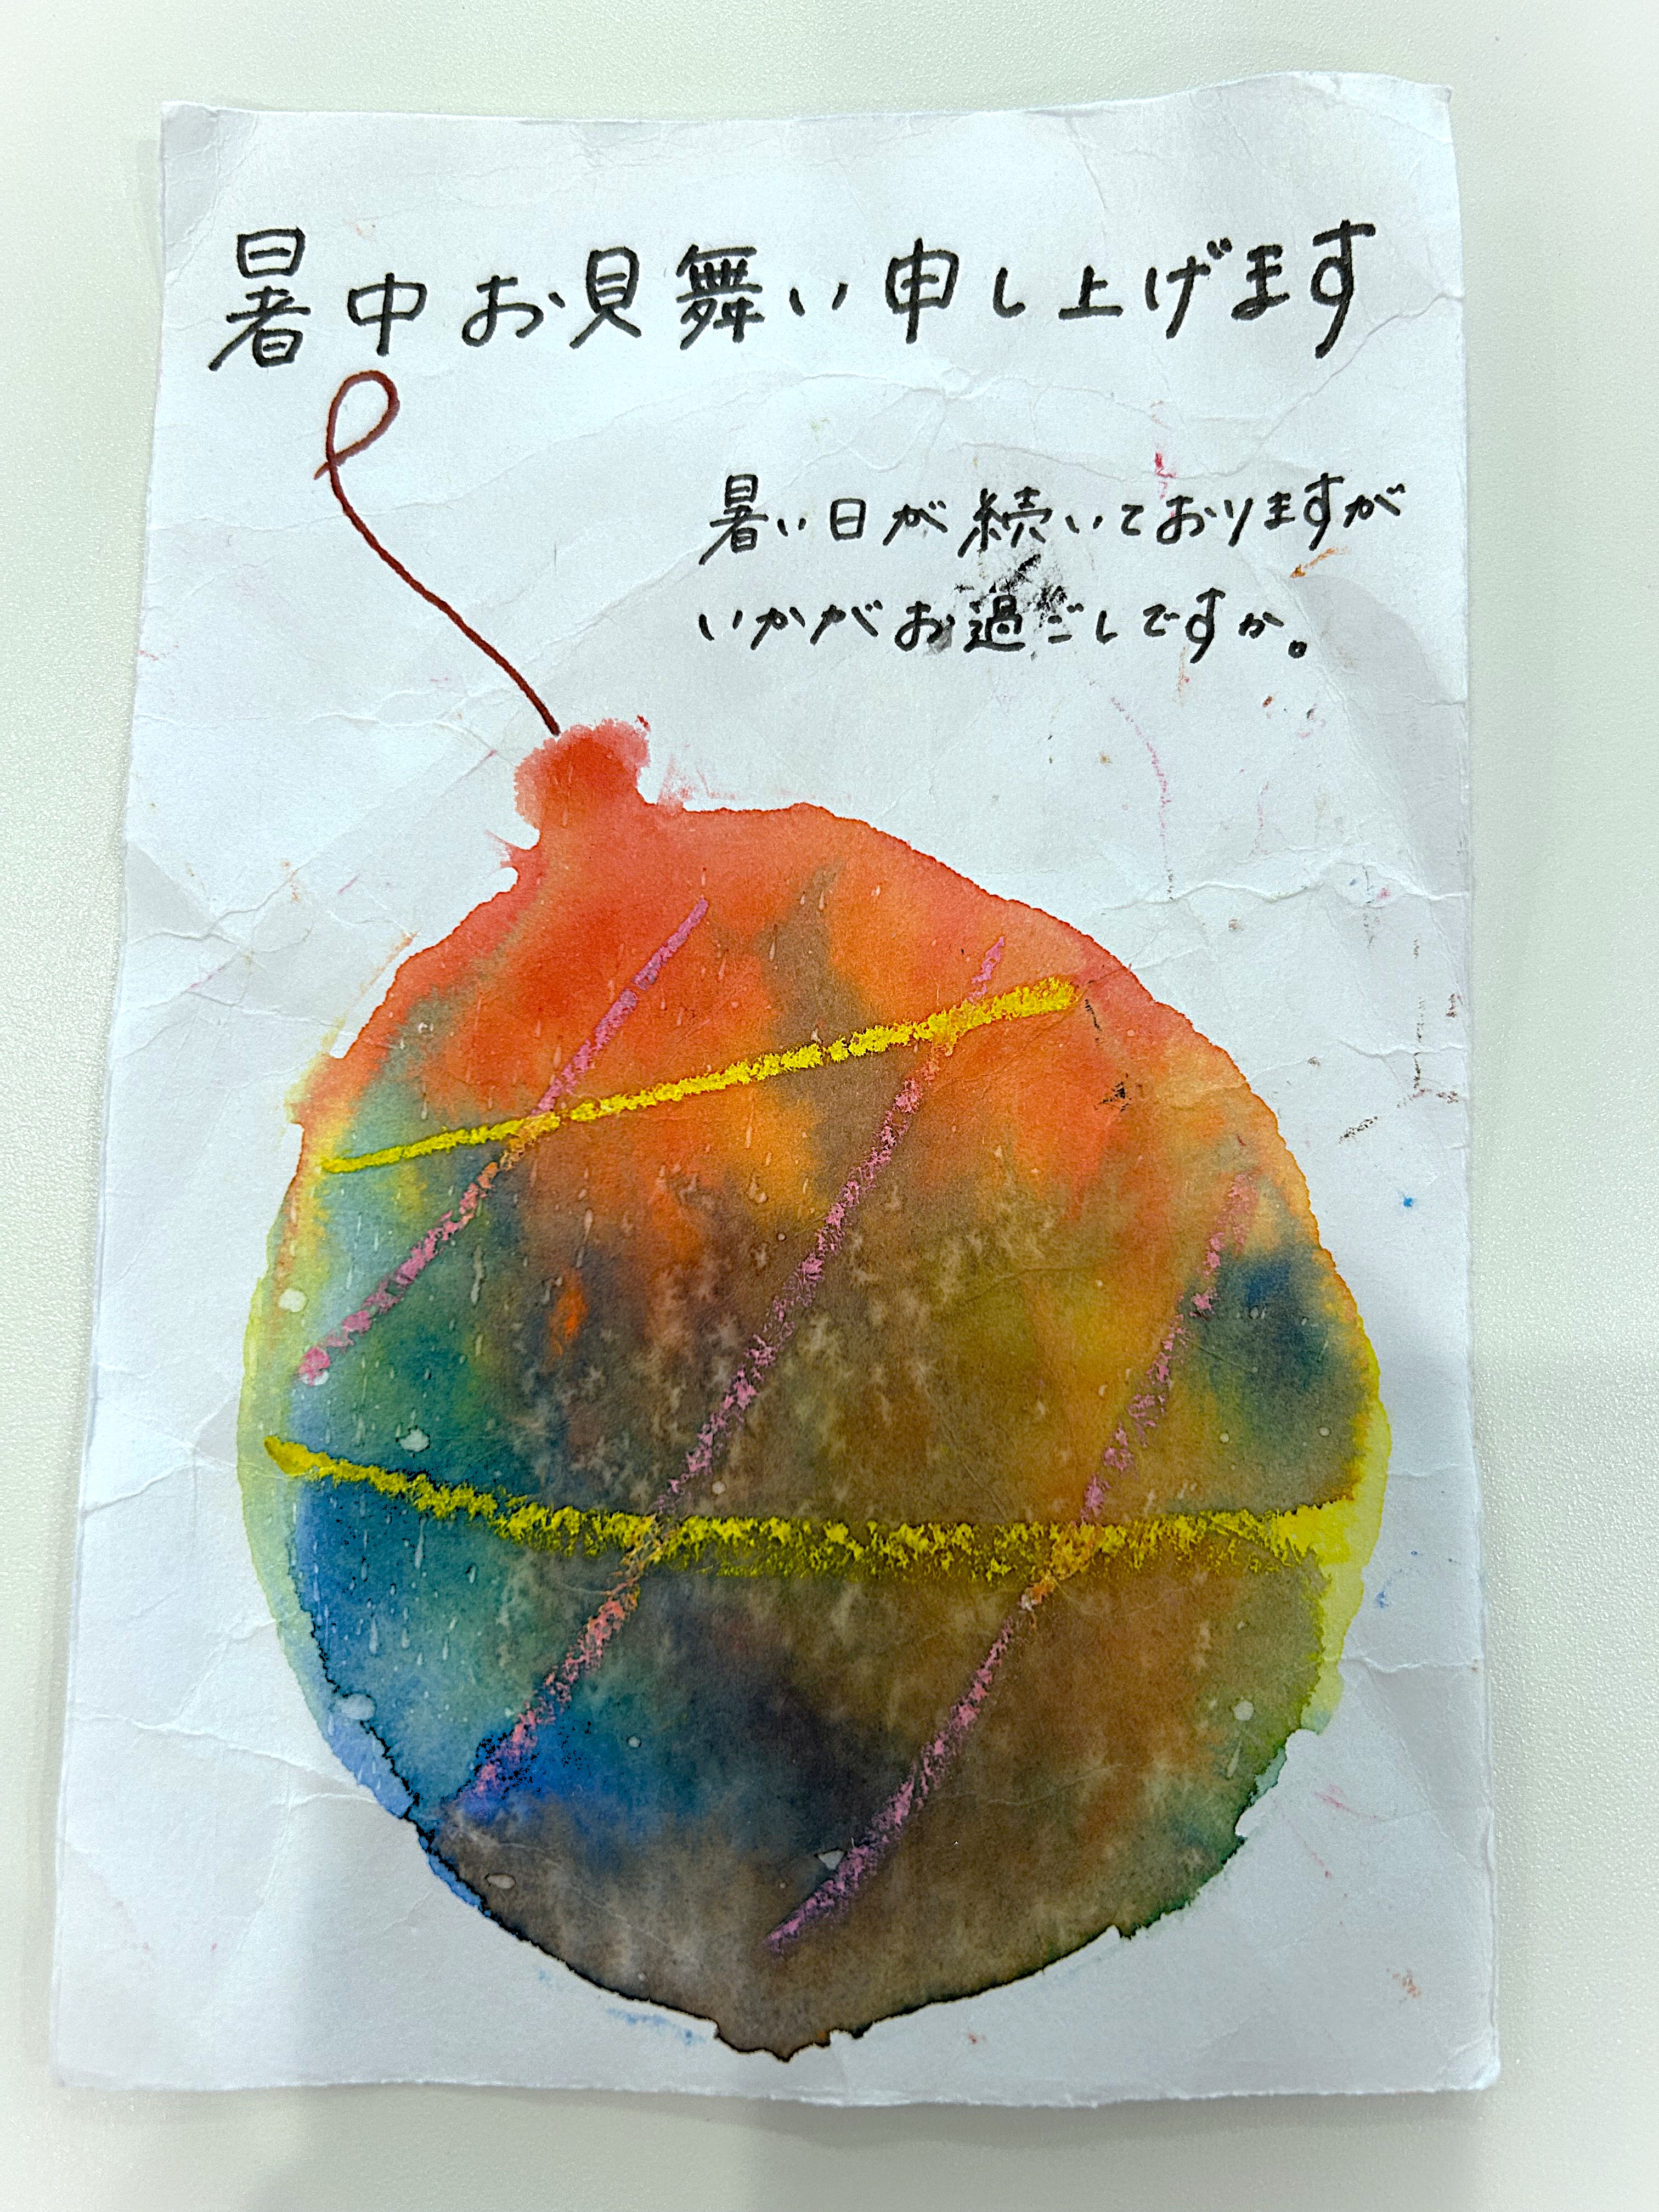 暑中お見舞い申し上げます
暑い日が続いておりますが
いかがお過ごしですか。